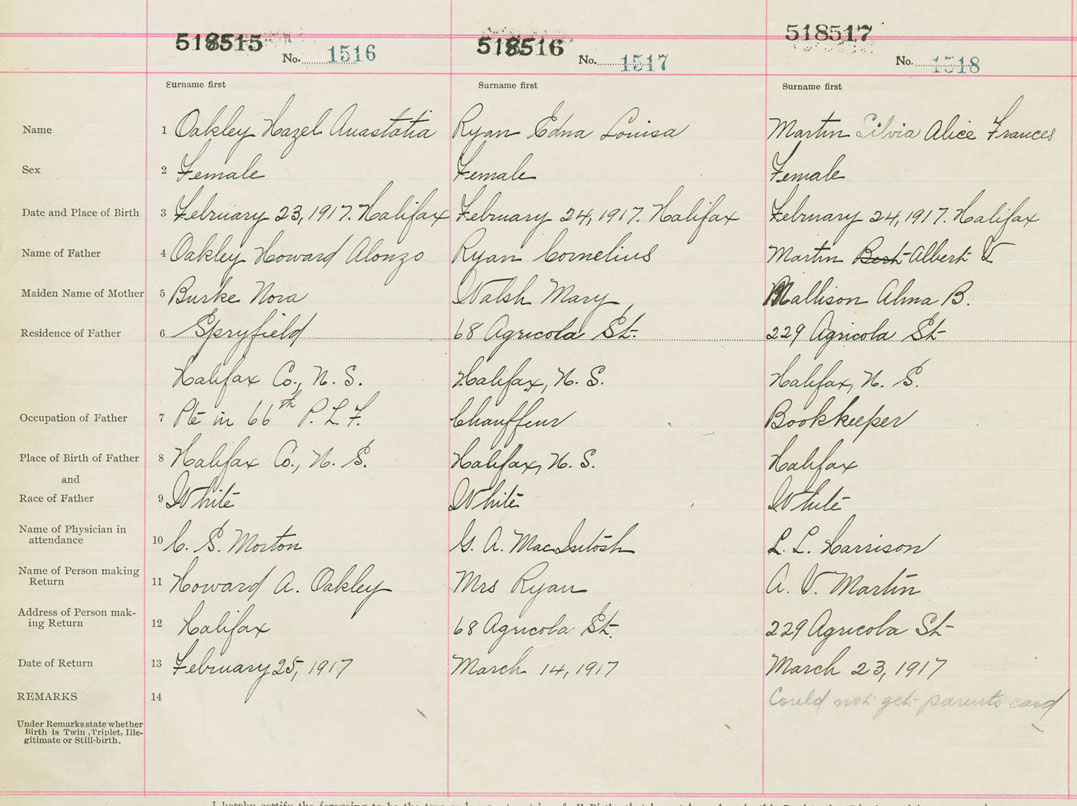 518515 No. 1516 518516 No. 1517 518517 No. 1518
Surname first Surname first Surname first
Name 1 Oakley Hazel Anastatia Ryan Edna Louisa Martin Silvia Alice Frances
Sex 2 Female Female Female
Date and Place of Birth 3 February 23, 1917. Halifax February 24, 1917. Halifax February 24, 1917. Halifax
Name of Father 4 Oakley Howard Alonzo Ryan Cornelius Martin Bert Albert V
Maiden Name of Mother 5 Burke Nora Walsh Mary Mallison Alma B.
Residence of Father 6 Spryfield 68 Agricola St. 229 Agricola St
Halifax Co., N. S. Halifax, N. S. Halifax, N. S.
Occupation of Father 7 Pte in 66th P. L. F. Chauffeur Bookkeeper
Place of Birth of Father 8 Halifax Co., N. S. Halifax, N. S. Halifax
and
Race of Father 9 White White White
Name of Physician in
attendance 10 C. S. Morton G. A. MacIntosh L. L. Harrison
Name of Person making
Return 11 Howard A. Oakley Mrs Ryan A. V. Martin
Address of Person mak-
ing Return 12 Halifax 68 Agricola St. 229 Agricola St
Date of Return 13 February 25, 1917 March 14, 1917 March 23, 1917
REMARKS 14 Could not get parents card
Under Remarks state whether
Birth is Twin, Triplet, Ille-
gitimate or Still-birth.
I hereby certify the foregoing to be the true and